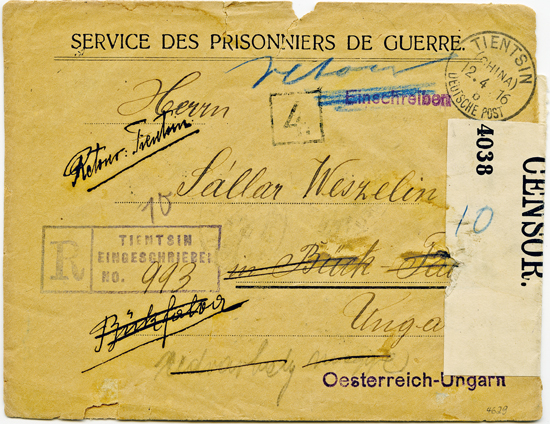 SERVICE DES PRISONNIERS DE GUERRE.
TIENTSIN
(CHINA)
12.4.16
DEUTSCHE POST
retour
Einschreiben
Herrn
4.
Retour: Tientsin
Sállar Weszelin
4038
CENSOR.
10
10
R
TIENTSIN
EINGESCHRIEBEN
NO. 993
in Bück
Bükfalva
Unga
Oesterreich-Ungarn
4629